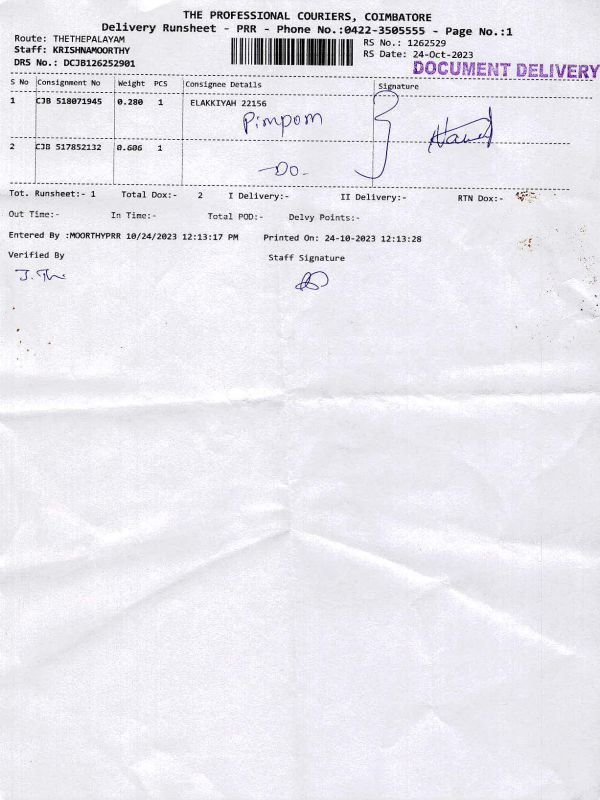 THE PROFESSIONAL COURIERS, COIMBATORE
Delivery Runsheet - PRR - Phone No.:0422-3505555 - Page No.:1
Route: THETHEPALAYAM
RS No.: 1262529
Staff: KRISHNAMOORTHY
RS Date: 24-Oct-2023
DRS No.: DCJB126252901
DOCUMENT DELIVERY
S No Consignment No Weight PCS Consignee Details Signature
1 CJB 518071945 0.280 1 ELAKKIYAH 22156
Pimpom
2 CJB 517852132 0.606 1
-Do.
Tot. Runsheet:- 1 Total Dox:- 2 I Delivery:- II Delivery:- RTN Dox:-
Out Time:- In Time:- Total POD:- Delvy Points:-
Entered By :MOORTHYPRR 10/24/2023 12:13:17 PM Printed On: 24-10-2023 12:13:28
Verified By Staff Signature